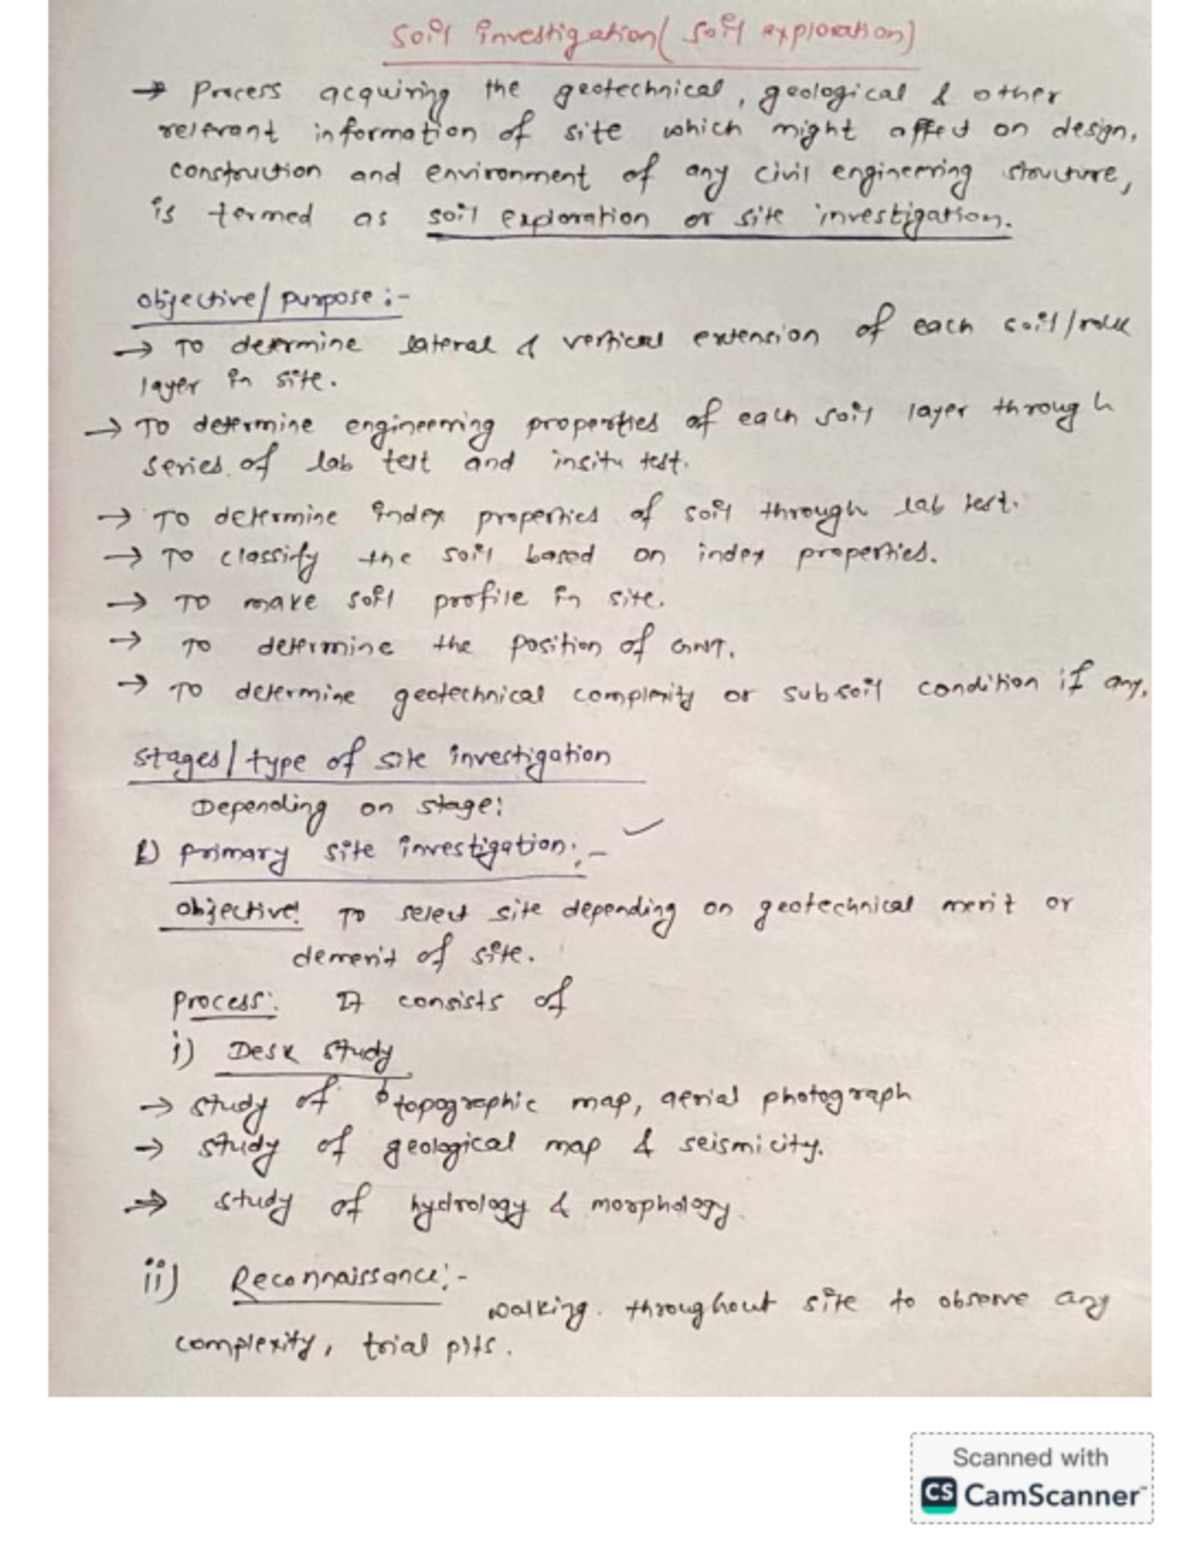 Soil investigation (soil exploration)
→ Process acquiring the geotechnical, geological & other
relevant information of site which might affect on design,
construction and environment of any civil engineering structure,
is termed as soil exploration or site investigation.
objective/purpose :-
→ To determine lateral & vertical extension of each soil/rock
layer in site.
→ To determine engineering properties of each soil layer through
series of lab test and insitu test.
→ To determine index properties of soil through lab test.
→ To classify the soil based on index properties.
→ To make soil profile in site.
→ To determine the position of GWT.
→ To determine geotechnical complexity or subsoil condition if any.
Stages/type of site investigation
Depending on stage:
1) primary site investigation:-
objective: To select site depending on geotechnical merit or
demerit of site.
process: It consists of
i) Desk study
→ study of topographic map, aerial photograph
→ study of geological map & seismicity.
→ study of hydrology & morphology.
ii) Reconnaissance:-
walking throughout site to observe any
complexity, trial pits.
Scanned with
CS CamScanner